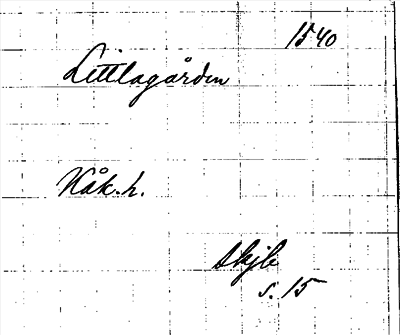 1540
Littlagården
Kåk. h.
Skjb
s. 15